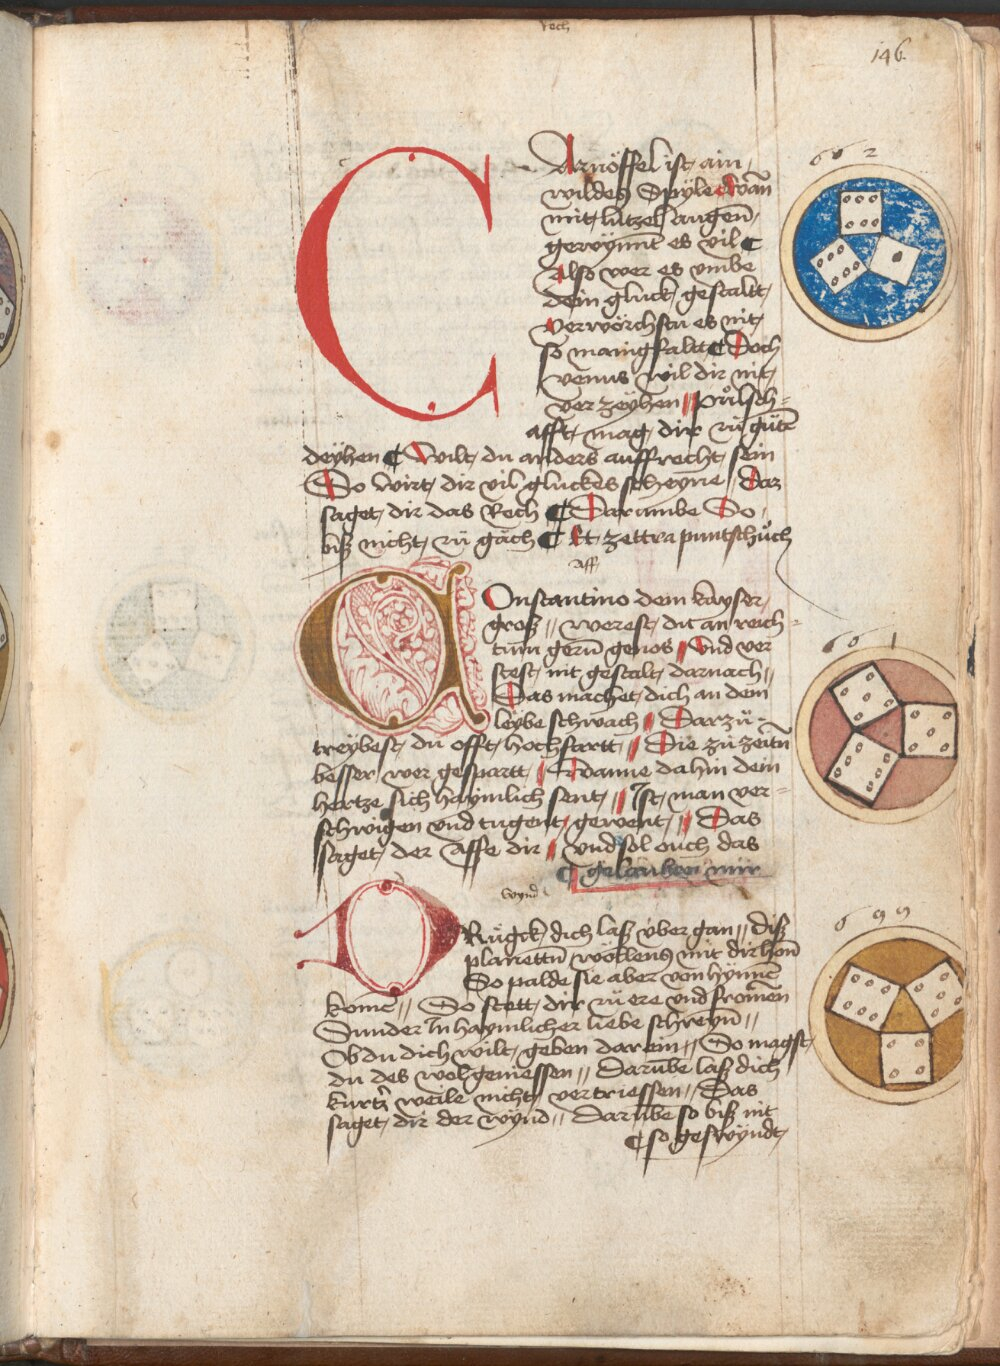 rech
146
Carnöffel ist ain
wildes Spÿle Wan
mit lützel augen
gewÿnnt es vil
Also wer es vmbe
dein glück gestaltt
verwörchstu es nit
so manigfaltt Doch
venus wil dir nit
verzeÿhen // půlsch=
afft mag dir zů gůtt
deÿhen Wilt du anders auffrecht sein
So wirt dir vil glückes scheÿne / Daz
saget dir das Rech Darumbe So
biß nicht zů gäch Et zettra puntschůch
Aff
Constantino dem kayser
groß // werest du an reich=
tum gern genos // Vnd ver
stest nit gestalt darnach //
Das machet dich an dem
leÿbe schwach // Darzů=
treÿbest du offt hochfartt // Die zu zeittn
besser wer gespartt // danne dahin dein
hertze sich haÿmlich sent // Ist man ver=
schwigen vnd tugent gewent // Das
saget der Affe dir // vnd sol ouch das
gelauben mir
wynd
DRügck dich laß v́ber gan // diß
planettn wöllens mit dir hon
So palde sie aber von hÿnnen
komen // So stett dir zů ere vnd fromen
Sunder In haÿmlicher liebe schreÿn //
Ob du dich wilt geben darein // So magst
du des wol geniessen // Darůbe laß dich
kurtz weile nicht vertriessen // Das
saget dir der wÿnd // Darůbe so biß nit
so geswÿndt
6 6 2
6 6 1
6